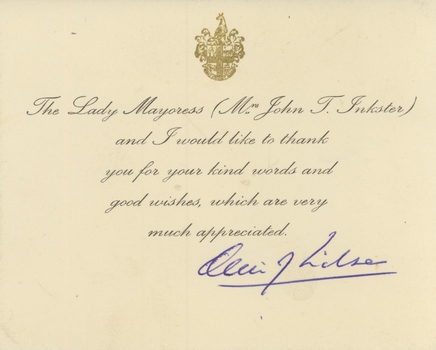 The Lady Mayoress (Mrs John T. Inkster)
and I would like to thank
you for your kind words and
good wishes, which are very
much appreciated.